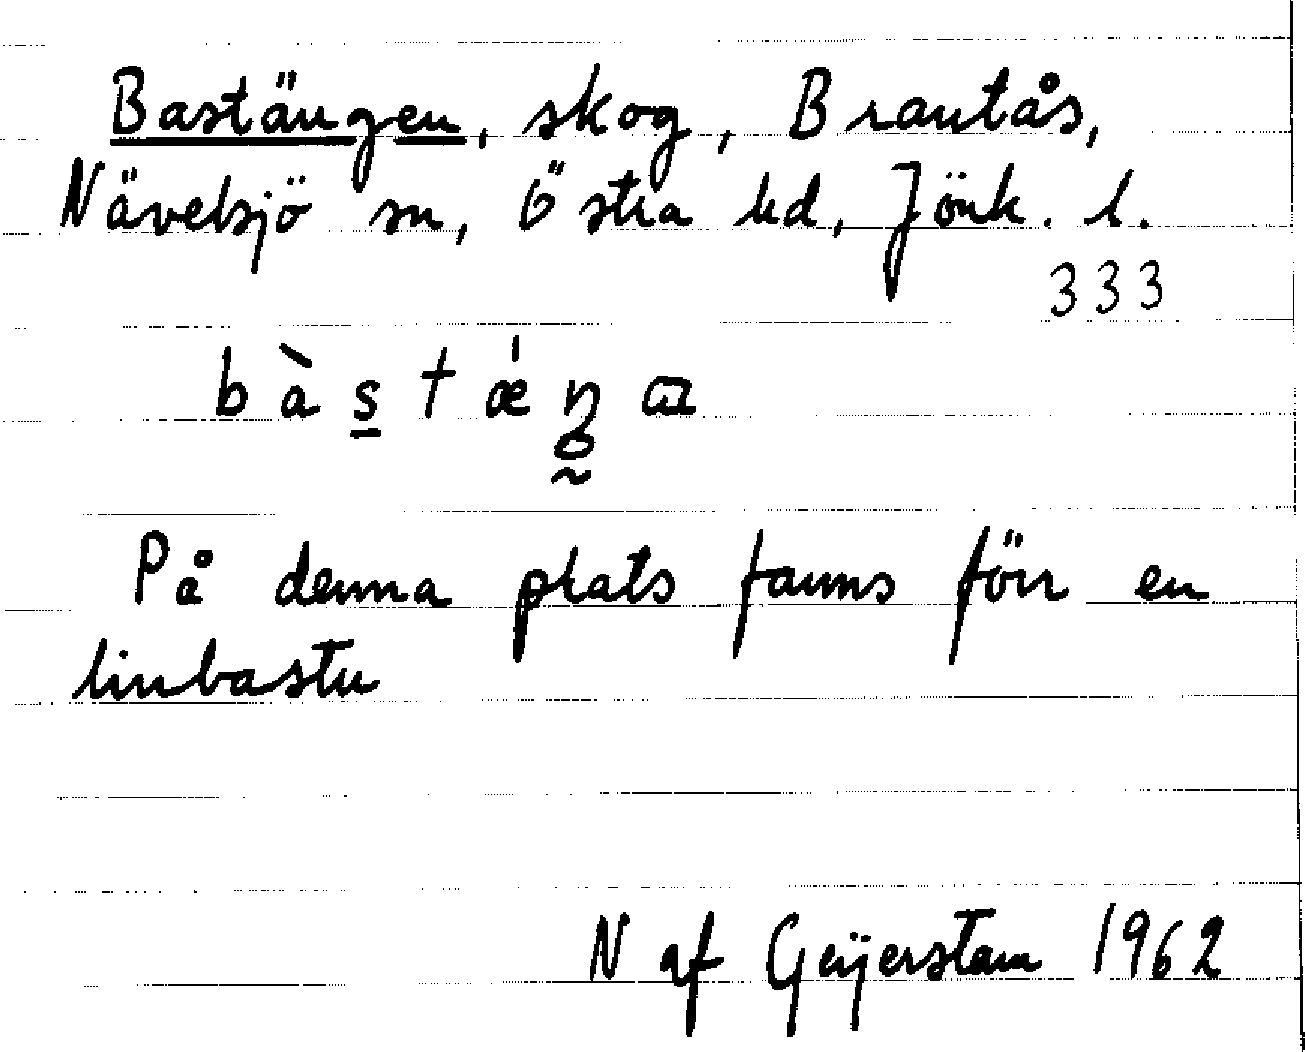 Bastängen, skog, Brantås,
Nävelsjö sn, Östra hd, Jönk. l.
333
På denna plats fanns förr en
linbastu
N af Geijerstam 1962